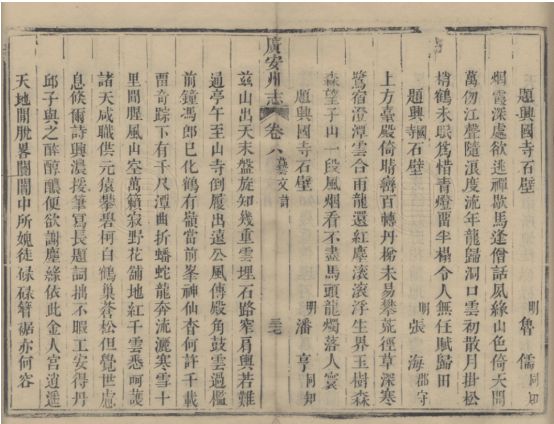 題興國寺石壁
明 魯儒 同知
烟霞深處欲逃禪歇馬逢僧話夙緣山色倚天開
萬仞江聲隨浪度流年龍歸洞口雲初散月掛松
梢鶴未眠爲惜青燈曾半榻令人無任賦歸田
題興國寺石壁 明 張海 郡守
上方臺殿倚晴巒百轉丹梯未易攀蘿徑草深寒
鷺宿澄潭雲合雨龍還紅塵滾滾浮生界玉樹森
森望子山一段風烟看不盡馬頭龍燭落人寰
題興國寺石壁 明 潘亨 同知
廣安州志 卷八 藝文 詩
玆山出天末盤旋知幾重雲埋石路窄肩輿若難
通亭午至山寺倒履出遠公風傳殿角鼓雲過檻
前鐘馮郎已化鶴有嶺當前峯神仙杳何許千載
畱奇踪下有千尺潭曲折蟠蛇龍奔流灑寒雪十
里聞腥風山空萬籟寂野花鋪地紅千雲悉呵護
諸天咸職供元猿攀碧柯白鶴巢蒼松但覺世慮
息倏爾詩興濃援筆寫長題詞拙不暇工安得丹
邱子與之醉醇醲便欲謝塵緣依此金人宮逍遥
天地間脫畧闤闠中所媿徒碌碌簪裾亦何容